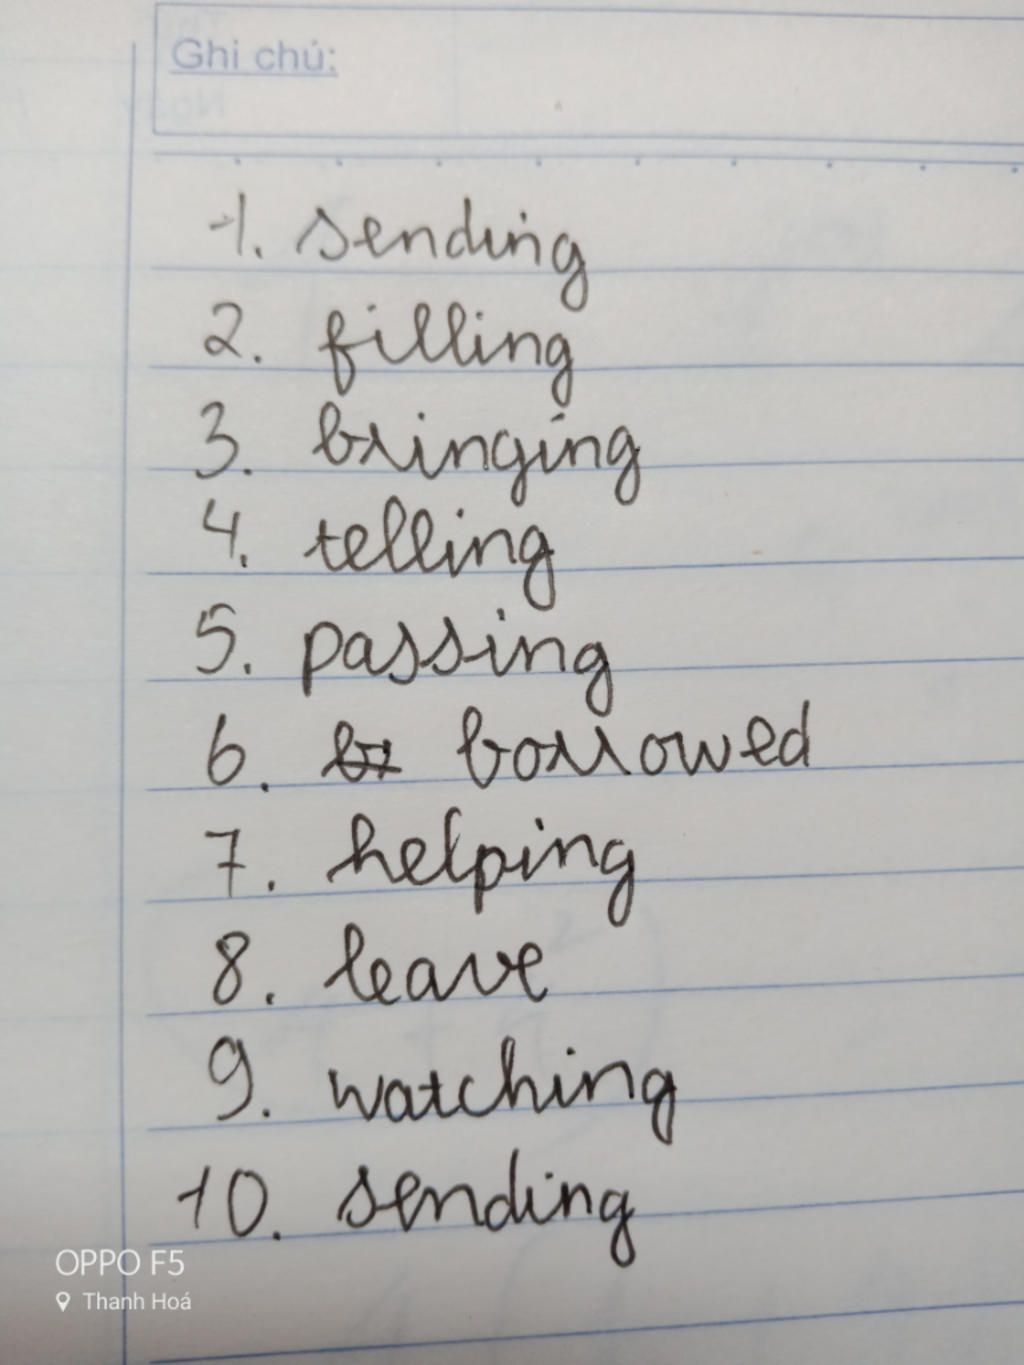 Ghi chú:
1. sending
2. filling
3. bringing
4. telling
5. passing
6. borrowed
7. helping
8. leave
9. watching
10. sending
OPPO F5
Thanh Hoá